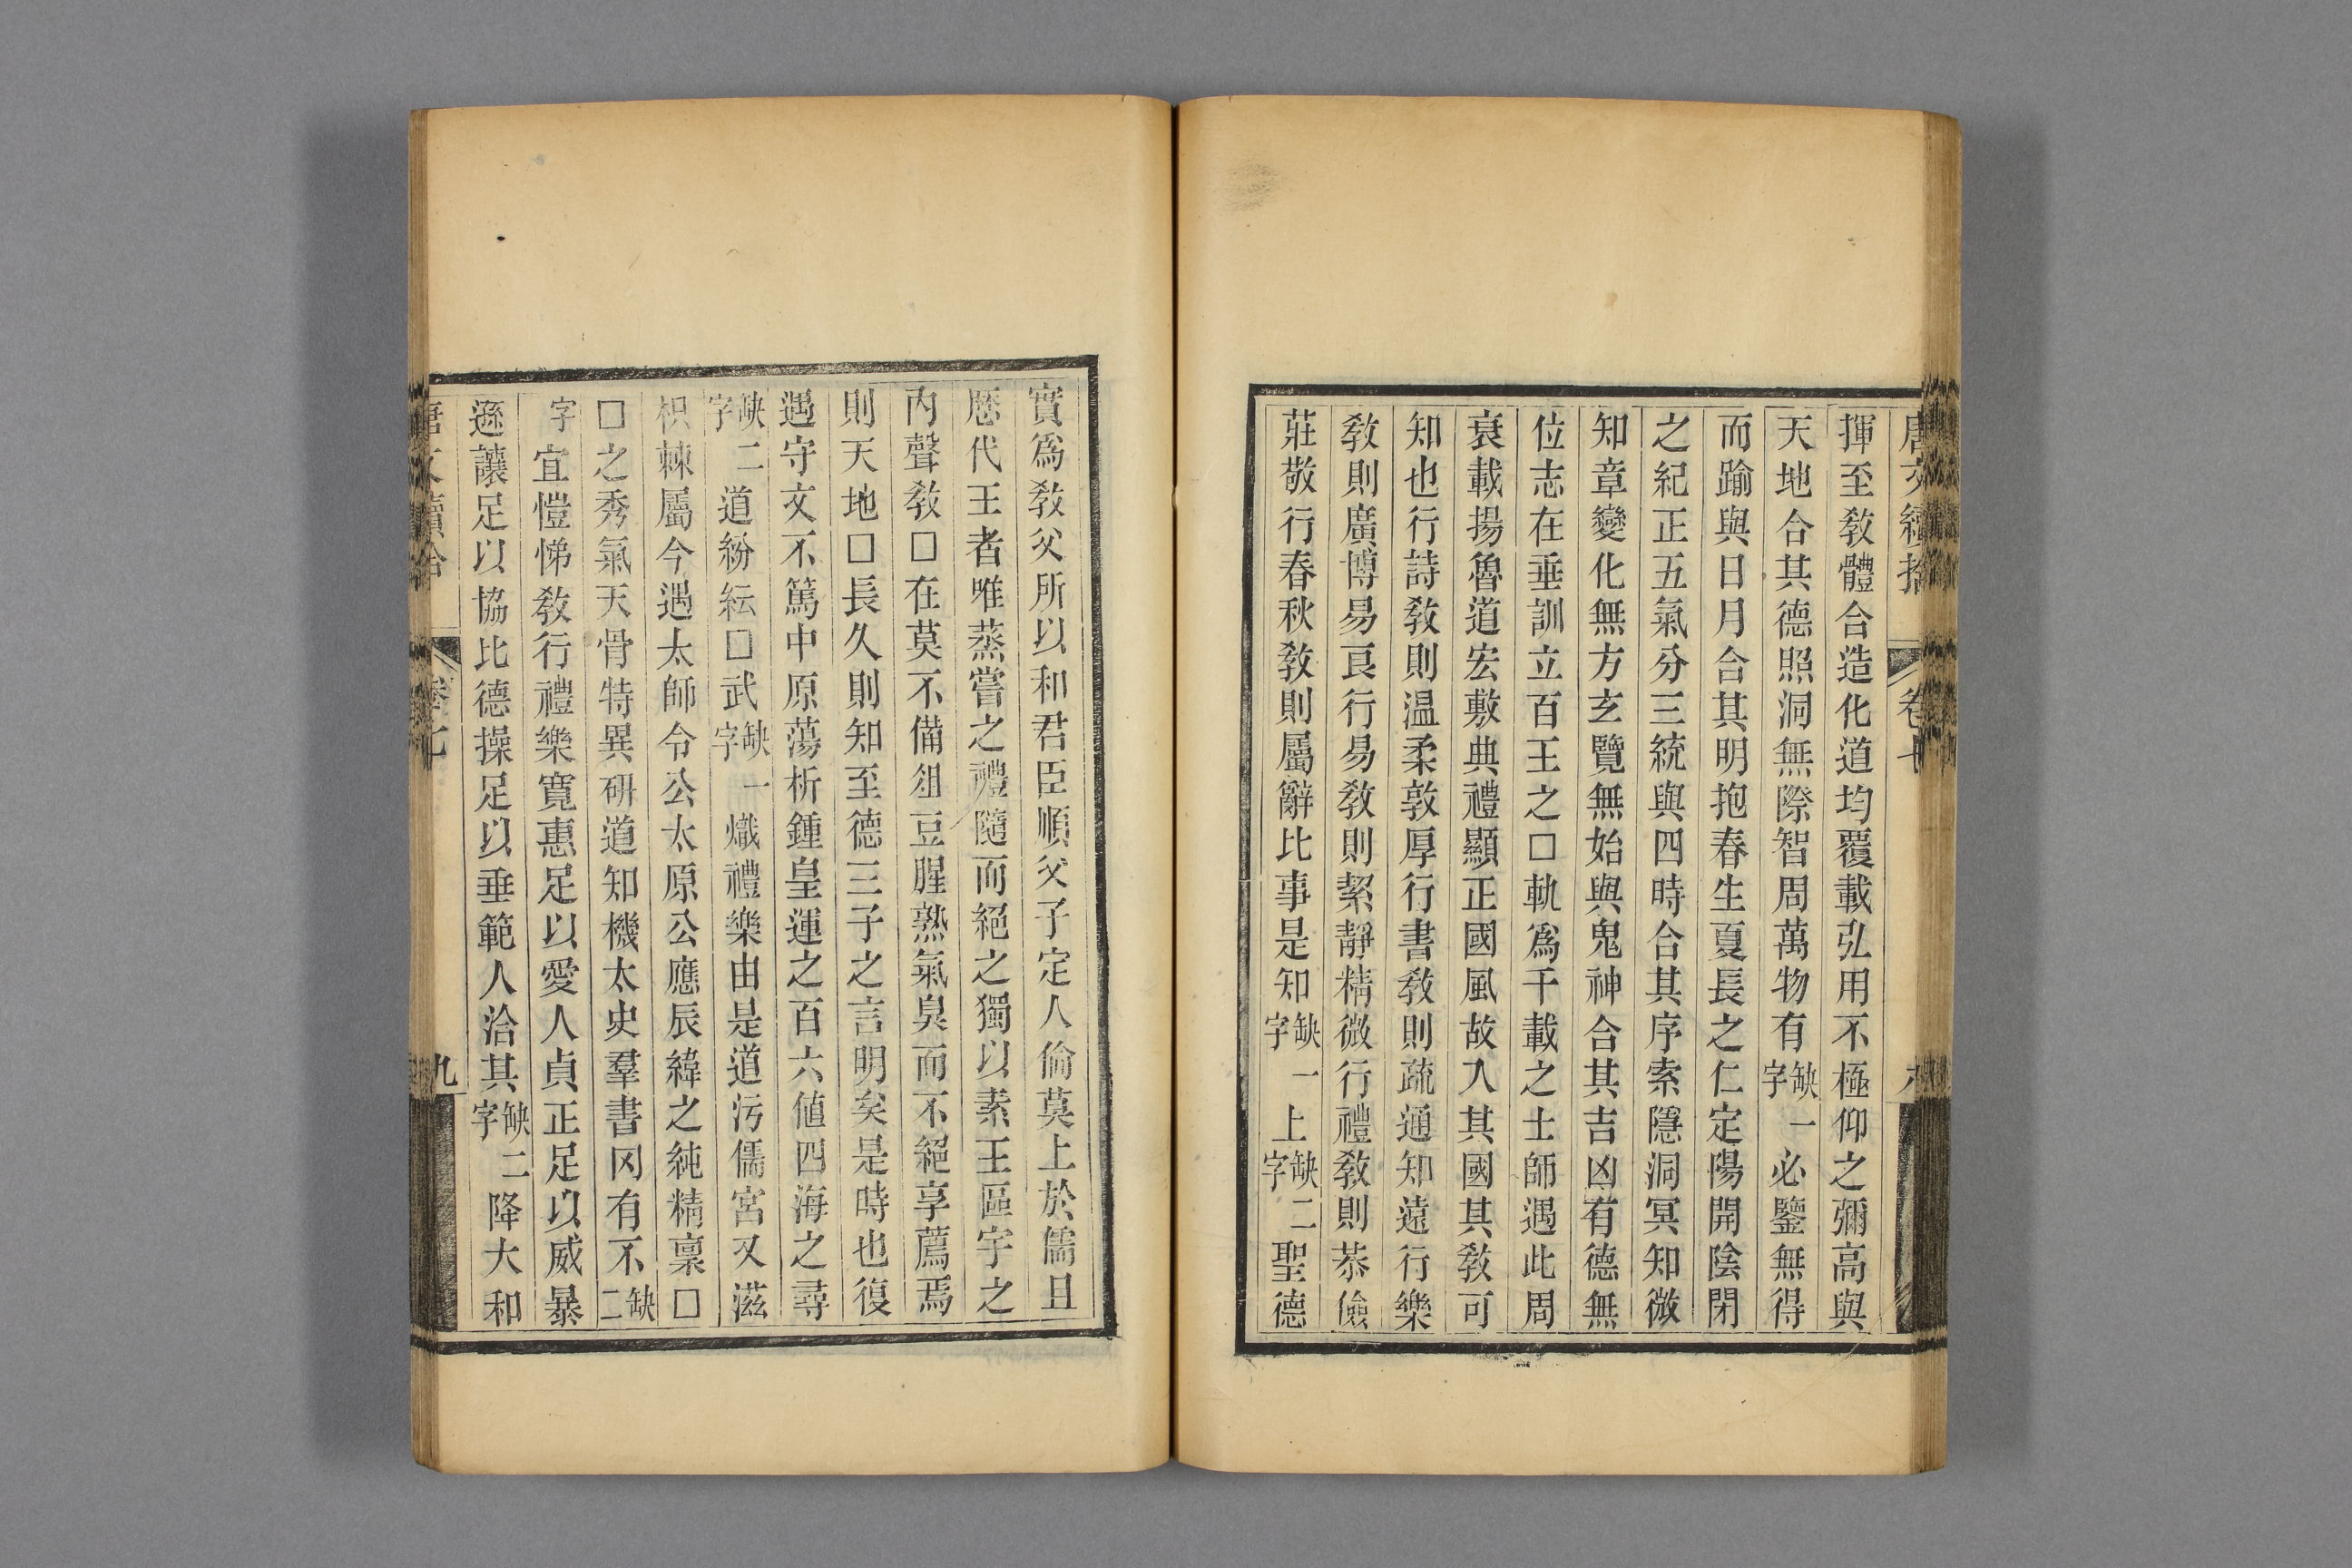 揮至敎體合造化道均覆載弘用不極仰之彌高與
天地合其德照洞無際智周萬物有缺一字必鑒無得
而踰與日月合其明抱春生夏長之仁定陽開陰閉
之紀正五氣分三統與四時合其序索隱洞冥知微
知章變化無方玄覽無始與鬼神合其吉凶有德無
位志在垂訓立百王之□軌爲千載之士師遇此周
衰載揚魯道宏敷典禮顯正國風故入其國其敎可
知也行詩敎則温柔敦厚行書敎則疏通知遠行樂
敎則廣博易良行易敎則絜靜精微行禮敎則恭儉
莊敬行春秋敎則屬辭比事是知缺一字上缺二字聖德
實爲敎父所以和君臣順父子定人倫莫上於儒且
歷代王者唯蒸嘗之禮隨而絕之獨以素王區宇之
内聲敎□在莫不備俎豆腥熟氣臭而不絕享薦焉
則天地□長久則知至德三子之言明矣是時也復
遇守文不篤中原蕩析鍾皇運之百六値四海之尋
缺二字道紛紜□武缺一字熾禮樂由是道污儒宮又滋
枳棘屬今遇太師令公太原公應辰緯之純精稟□
□之秀氣天骨特異硏道知機太史羣書罔有不缺二
字宜愷悌敎行禮樂寬惠足以愛人貞正足以威暴
遜讓足以協比德操足以垂範人洽其缺二字降大和
唐文續拾 卷七 九